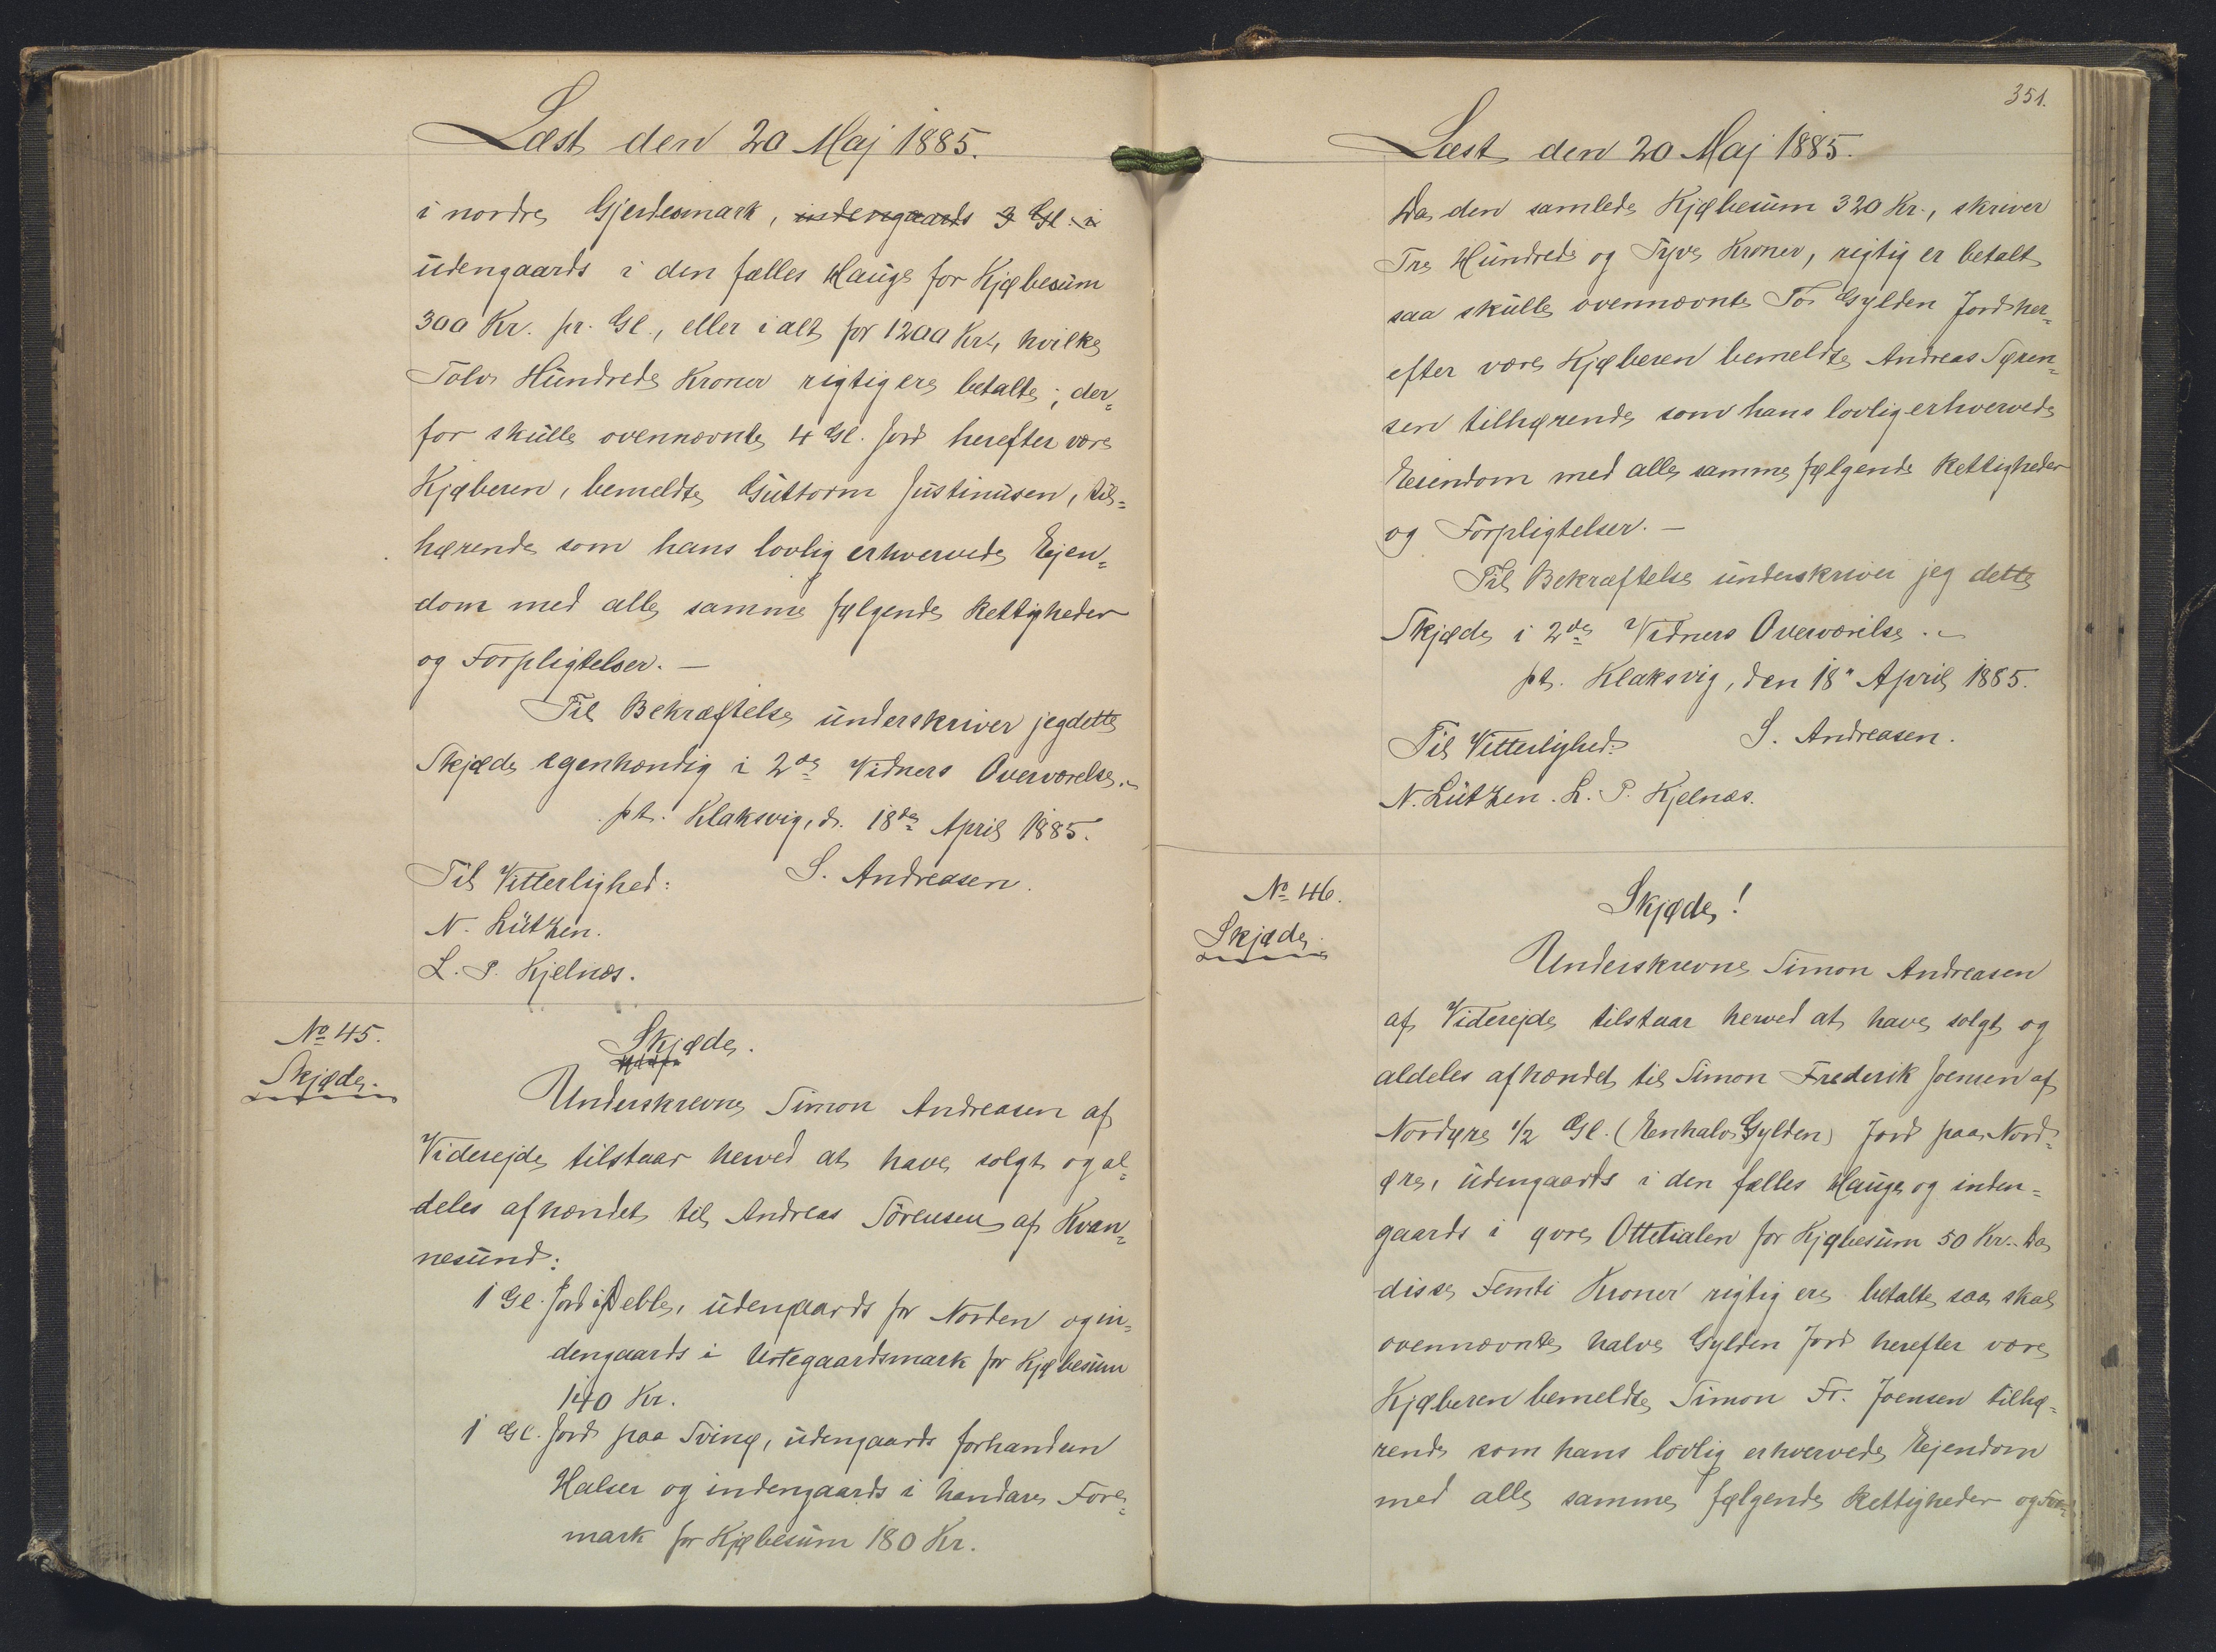 Læst den 20 Maj 1885.
i nordre Gjerdesmark, indengaards 3 Gl. i
udengaards i den fælles Hauge for Kjøbesum
300 Kr. pr. Gl., eller i alt for 1200 Kr., hvilke
Tolv Hundrede Kroner rigtig ere betalte; der=
for skulle ovennævnte 4 Gl. Jord herefter være
Kjøberen, bemeldte Guttorm Justinusen, til=
hørende som hans lovlig erhvervede Ejen=
dom med alle samme følgende Rettigheder
og Forpligtelser. —
Til Bekræftelse underskriver jeg dette
Skjøde egenhændig i 2de Vidners Overværelse. ~
pt. Klaksvig, d. 18de April 1885.
Til Vitterlighed: S. Andreasen.
N. Lützen.
L. P. Kjelnæs.
No 45.
Skjøde.
Skjøde.
Underskrevne Simon Andreasen af
Viderejde tilstaar herved at have solgt og al=
deles afhændet til Andreas Sörensen af Kvan=
nesund:
1 Gl. Jord i Deble, udengaards for Norden og in=
dengaards i Urtegaardsmark for Kjøbesum
140 Kr.
1 Gl. Jord paa Tvinø, udengaards forhanden
Halser og indengaards i handare Fore=
mark for Kjøbesum 180 Kr.
351.
Læst den 20 Maj 1885.
Da den samlede Kjøbesum 320 Kr., skriver
Tre Hundrede og Tyve Kroner, rigtig er betalt
saa skulle ovennævnte To Gylden Jord her=
efter være Kjøberen bemeldte Andreas Søren=
sen tilhørende som hans lovlig erhvervede
Eiendom med alle samme følgende Rettigheder
og Forpligtelser. —
Til Bekræftelse underskriver jeg dette
Skjøde i 2de Vidners Overværelse. ~
pt. Klaksvig, den 18" April 1885.
Til Vitterlighed: S. Andreasen.
N. Lützen. L. P. Kjelnæs.
No 46.
Skjøde.
Skjøde!
Underskrevne Simon Andreasen
af Viderejde tilstaar herved at have solgt og
aldeles afhændet til Simon Frederik Joensen af
Nordøre 1/2 Gl. (Eenhalv Gylden) Jord paa Nord=
øre, udengaards i den fælles Hauge og inden=
gaards i øvre Ottetialen for Kjøbesum 50 Kr. – Da
disse Femti Kroner rigtig ere betalte saa skal
ovennævnte halve Gylden Jord herefter være
Kjøberen bemeldte Simon Fr. Joensen tilhø=
rende som hans lovlig erhvervede Ejendom
med alle samme følgende Rettigheder og For=